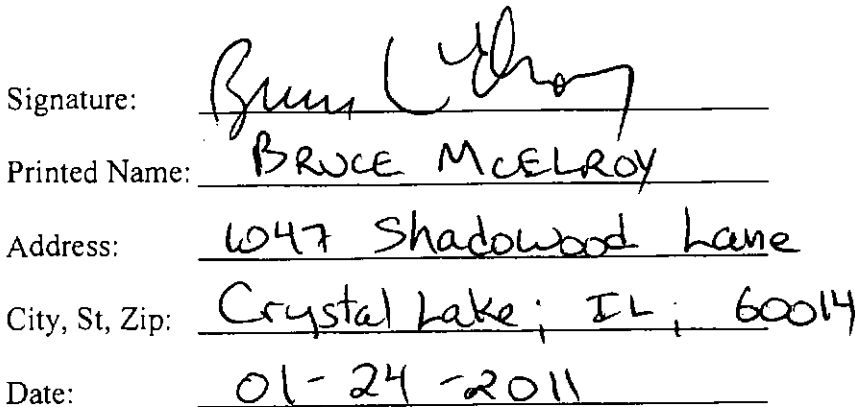 Signature: Bruce McElroy
Printed Name: BRUCE MCELROY
Address: 6047 Shadowood Lane
City, St, Zip: Crystal Lake; IL; 60014
Date: 01-24-2011